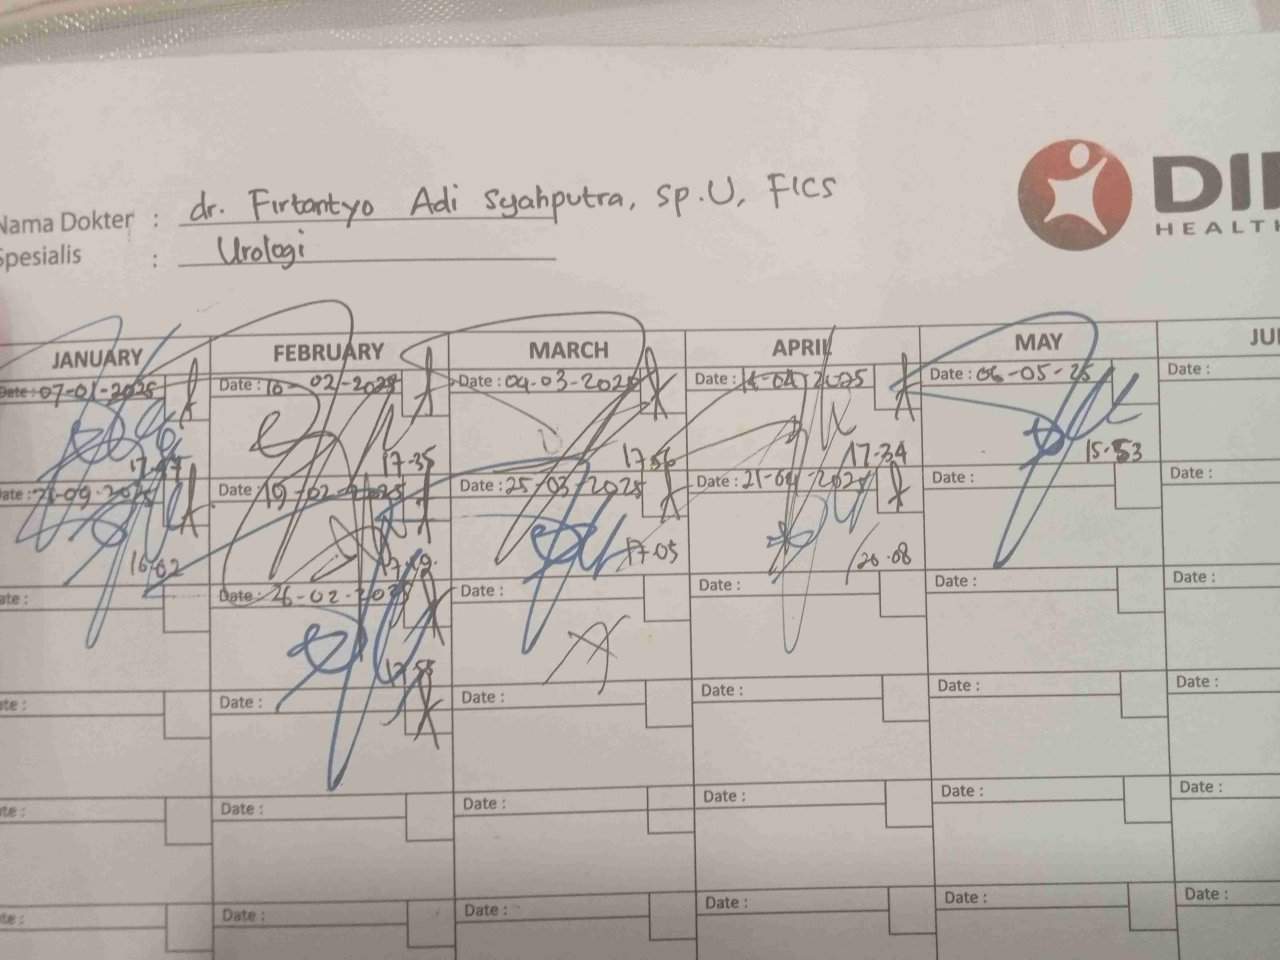 Nama Dokter : dr. Firtantyo Adi Syahputra, Sp.U, FICS
Spesialis : Urologi
HEALTH
JANUARY FEBRUARY MARCH APRIL MAY
Date : 07-01-2025 Date : 10-02-2025 Date : 04-03-2025 Date : 14-04-2025 Date : 06-05-25 Date :
17-35 17-56 17-34 15-53
Date : Date : 19-02-2025 Date : 25-03-2025 Date : 21-04-2025 Date : Date :
16-02 17-05 20-08
Date : Date : 26-02-2025 Date : Date : Date : Date :
17-55
Date : Date : Date : Date : Date : Date :
Date : Date : Date : Date : Date : Date :
Date : Date : Date : Date : Date :